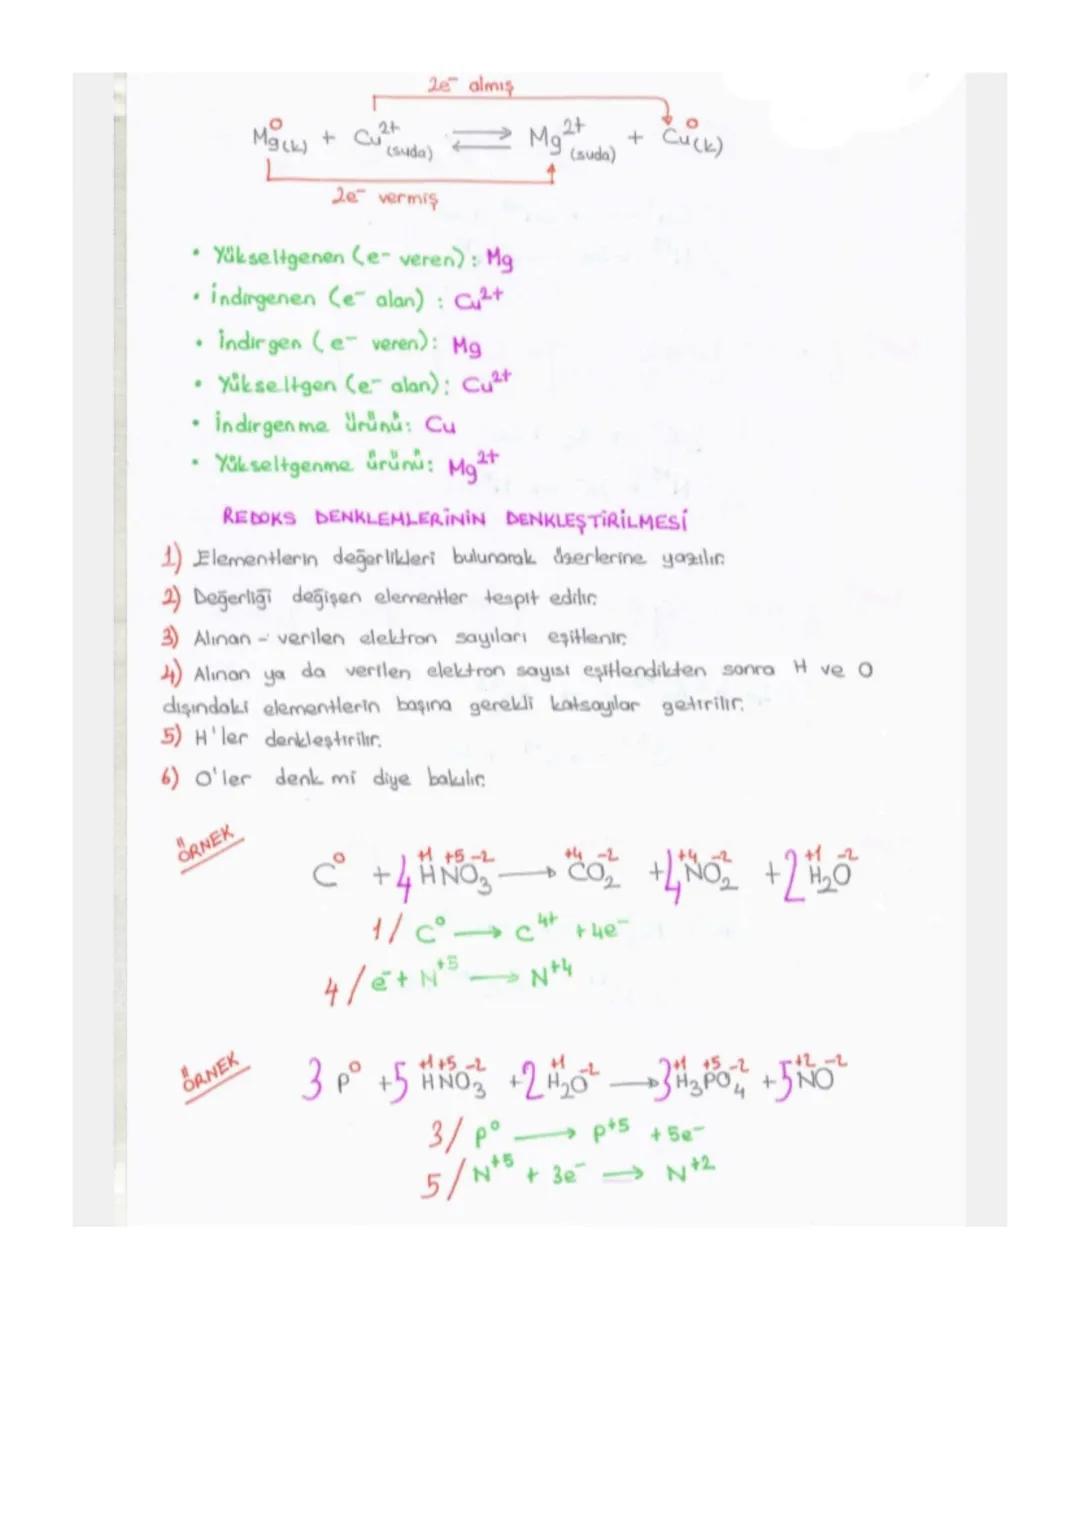 2e⁻ almış
Mg⁰(k) + Cu²⁺(suda) ⇌ Mg²⁺(suda) + Cu⁰(k)
2e⁻ vermiş
• Yükseltgenen (e- veren): Mg
• İndirgenen (e⁻ alan) : Cu²⁺
• İndirgen (e⁻ veren): Mg
• Yükseltgen (e⁻ alan): Cu²⁺
• İndirgenme ürünü: Cu
• Yükseltgenme ürünü: Mg²⁺
REDOKS DENKLEMLERİNİN DENKLEŞTİRİLMESİ
1) Elementlerin değerlikleri bulunarak üzerlerine yazılır.
2) Değerliği değişen elementler tespit edilir.
3) Alınan - verilen elektron sayıları eşitlenir.
4) Alınan ya da verilen elektron sayısı eşitlendikten sonra H ve O
dışındaki elementlerin başına gerekli katsayılar getirilir.
5) H'ler denkleştirilir.
6) O'ler denk mi diye bakılır.
ÖRNEK
+1 +5 -2 +4 -2 +4 -2 +1 -2
C⁰ + 4HNO₃ → CO₂ + 4NO₂ + 2H₂O
1/ C⁰ → C⁴⁺ + 4e⁻
4/ e⁻ + N⁺⁵ → N⁺⁴
ÖRNEK
+1 +5 -2 +1 -2 +1 +5 -2 +2 -2
3P⁰ + 5HNO₃ + 2H₂O → 3H₃PO₄ + 5NO
3/ P⁰ → P⁺⁵ + 5e⁻
5/ N⁺⁵ + 3e⁻ → N⁺²